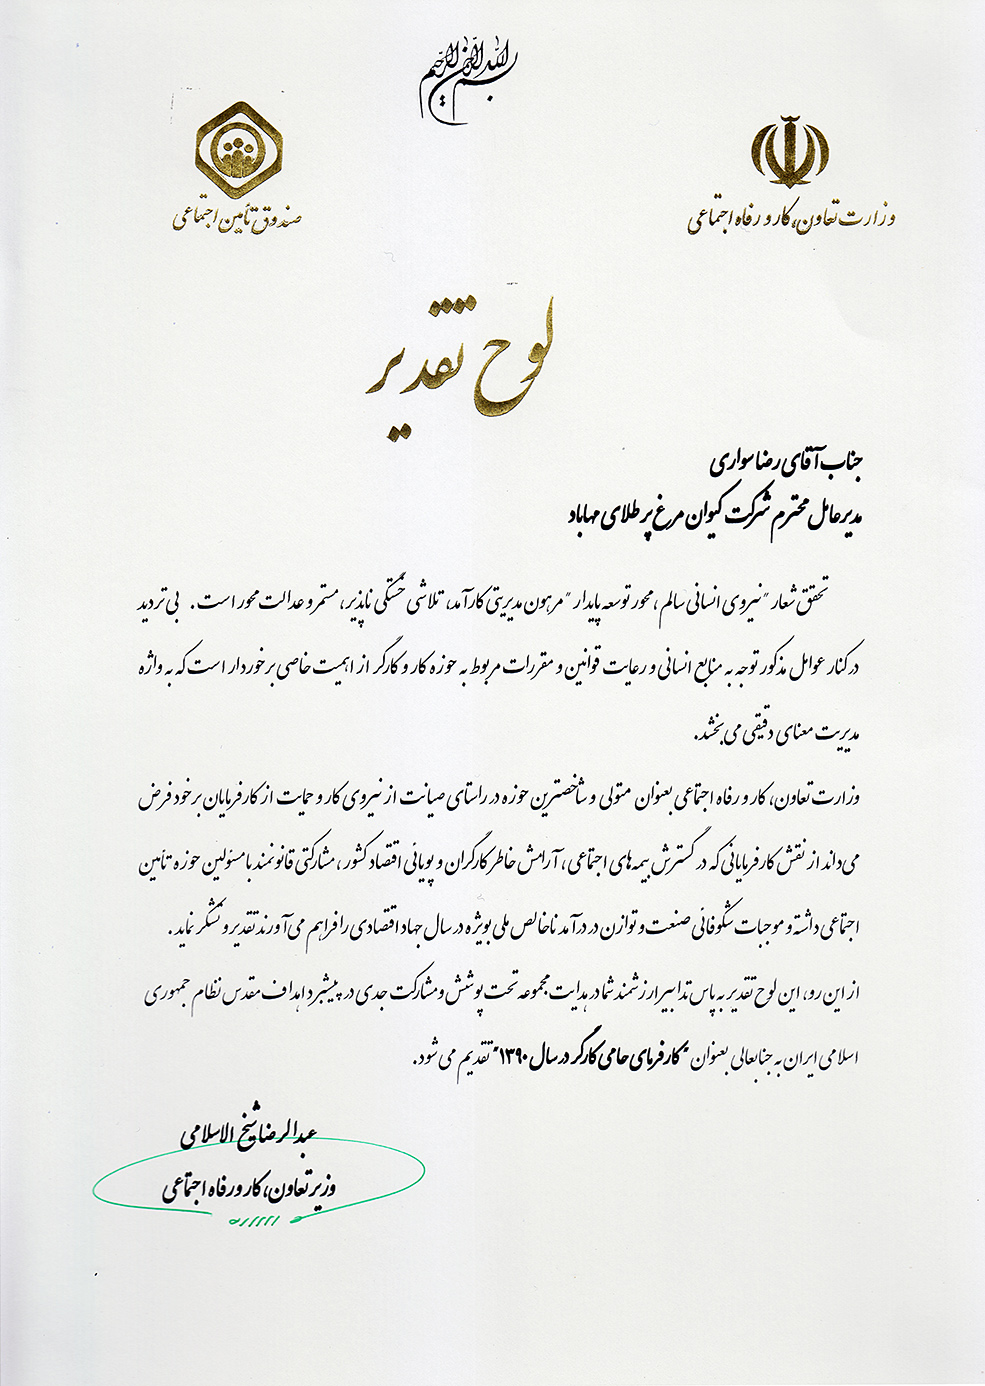 بسم الله الرحمن الرحیم
وزارت تعاون، کار و رفاه اجتماعی
صندوق تأمین اجتماعی
لوح تقدیر
جناب آقای رضا سواری
مدیرعامل محترم شرکت کیوان مرغ پر طلای مهاباد
تحقق شعار "نیروی انسانی سالم، محور توسعه پایدار" مرهون مدیریتی کارآمد، تلاشی خستگی ناپذیر، مستمر و عدالت محور است. بی تردید
در کنار عوامل مذکور توجه به منابع انسانی و رعایت قوانین و مقررات مربوط به حوزه کار و کارگر از اهمیت خاصی برخوردار است که به واژه
مدیریت معنای دقیقی می بخشد.
وزارت تعاون، کار و رفاه اجتماعی بعنوان متولی و شاخصترین حوزه در راستای صیانت از نیروی کار و حمایت از کارفرمایان بر خود فرض
می داند از نقش کارفرمایانی که در گسترش بیمه های اجتماعی، آرامش خاطر کارگران و پویائی اقتصاد کشور، مشارکتی قانونمند با مسئولین حوزه تأمین
اجتماعی داشته و موجبات شکوفائی صنعت و توازن در درآمد ناخالص ملی بویژه در سال جهاد اقتصادی را فراهم می آورند تقدیر و تشکر نماید.
از این رو، این لوح تقدیر به پاس تدابیر ارزشمند شما در هدایت مجموعه تحت پوشش و مشارکت جدی در پیشبرد اهداف مقدس نظام جمهوری
اسلامی ایران به جنابعالی بعنوان "کارفرمای حامی کارگر در سال ۱۳۹۰" تقدیم می شود.
عبدالرضا شیخ الاسلامی
وزیر تعاون، کار و رفاه اجتماعی